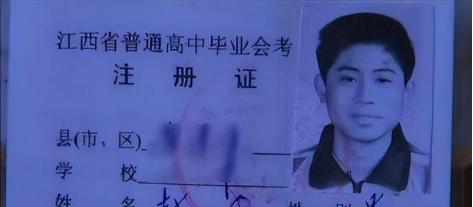 江西省普通高中毕业会考
注 册 证
县(市、区)
学 校
姓 名 性别